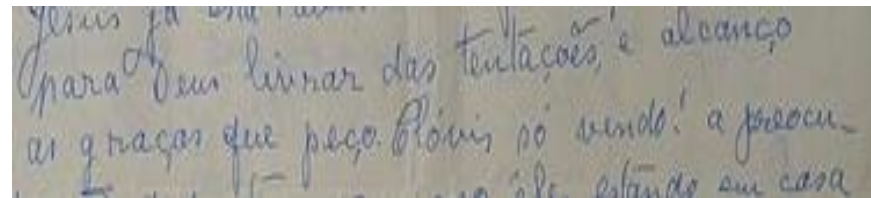 Jesus já está
para Deus livrar das tentações, e alcanço
as graças que peço. Clóvis só vendo! a preocu-
ele estando em casa